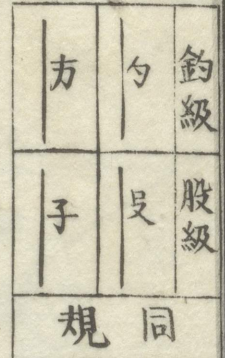 鈎級
股級
勺
殳
方
子
同規